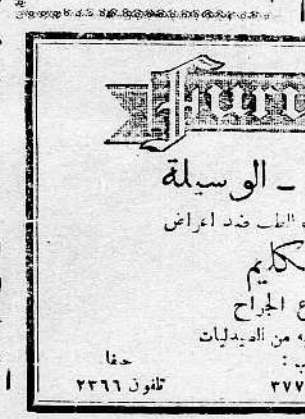 ـ الوسيلة
الطب ضد اعراض
كليم
ع الجراح
ه من الصيدليات
حيفا
٣٧٧
تلفون ٢٣٦٦